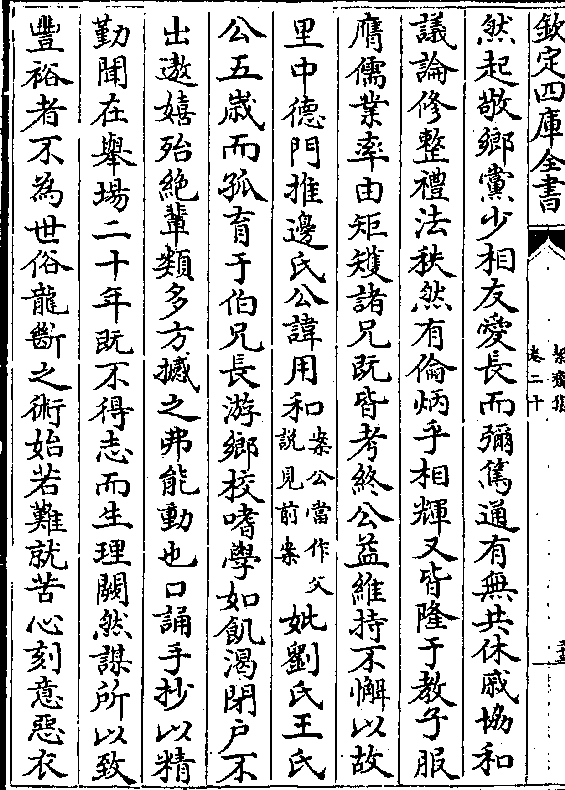 欽定四庫全書
絜齋集
卷二十
然起敬鄉黨少相友愛長而彌篤通有無共休戚協和
議論修整禮法秩然有倫炳乎相輝又皆隆于教子服
膺儒業率由矩矱諸兄既皆考終公益維持不懈以故
里中德門推邊氏公諱用和案公當作父說見前案妣劉氏王氏
公五歲而孤育于伯兄長游鄉校嗜學如飢渴閉戶不
出遨嬉殆絶輩類多方撼之弗能動也口誦手抄以精
勤聞在舉場二十年既不得志而生理闕然謀所以致
豐裕者不為世俗龍斷之術始若難就苦心刻意惡衣